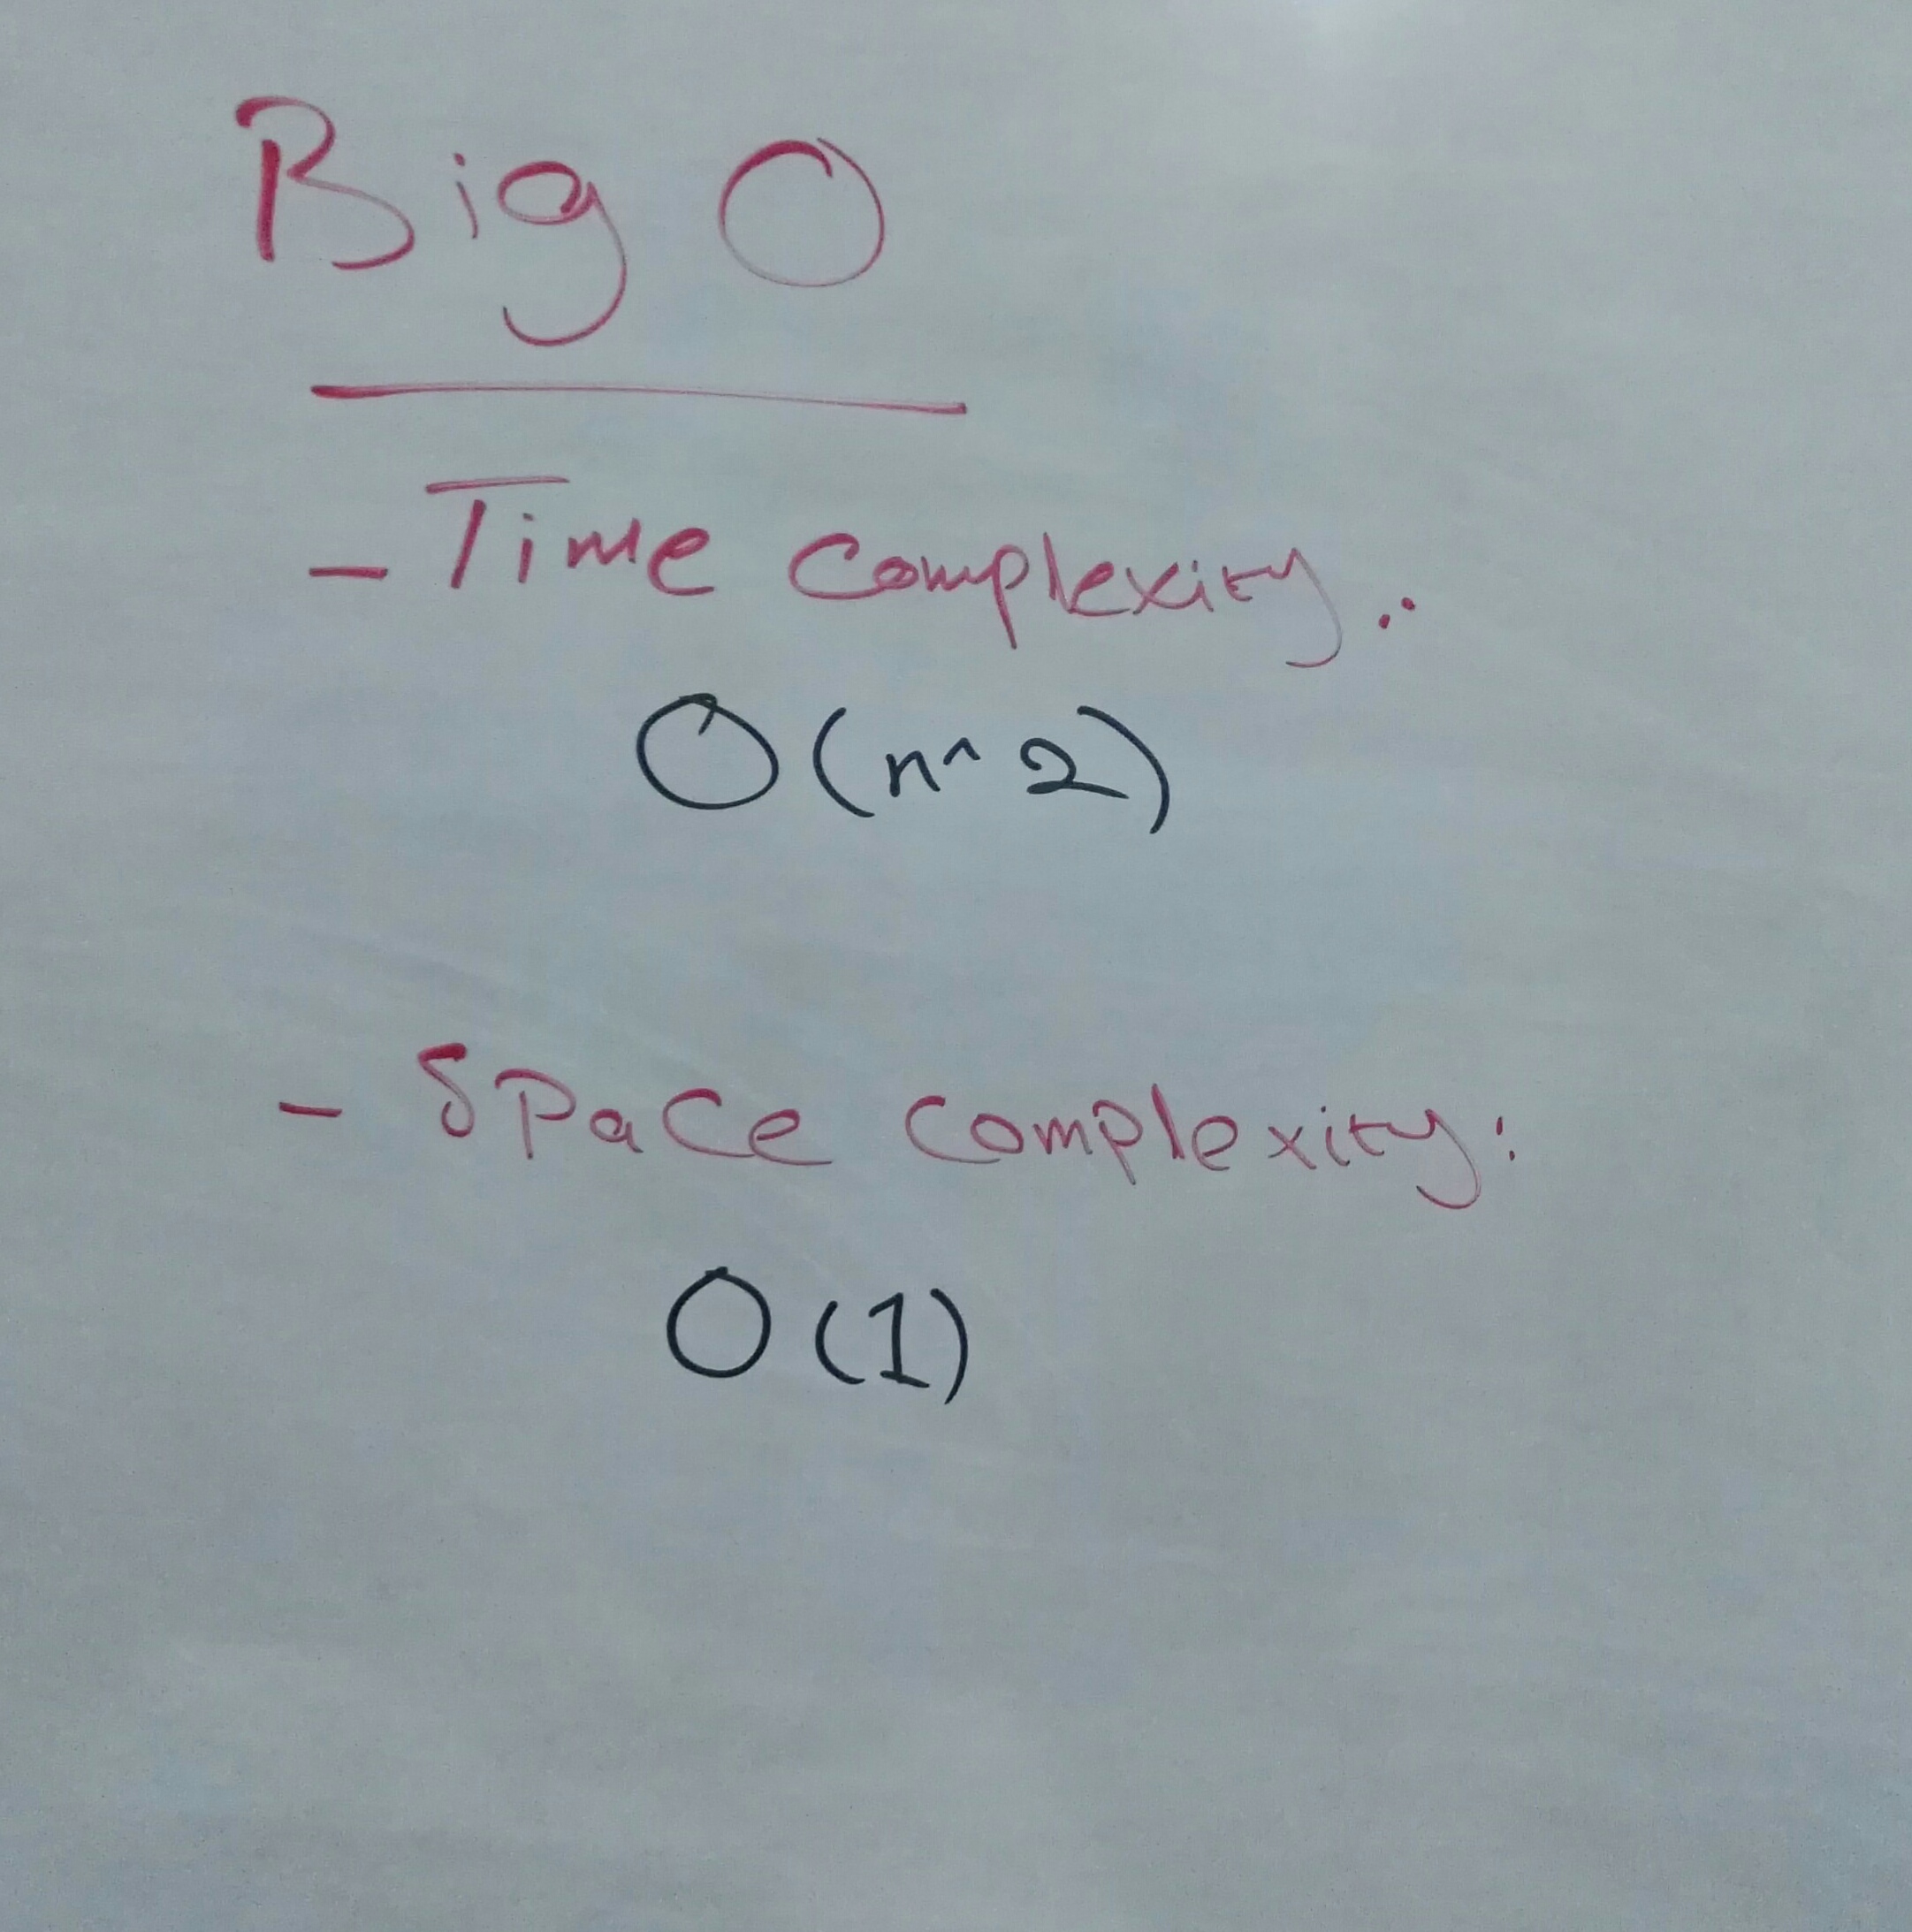 Big O
- Time complexity:
O(n^2)
- Space complexity:
O(1)